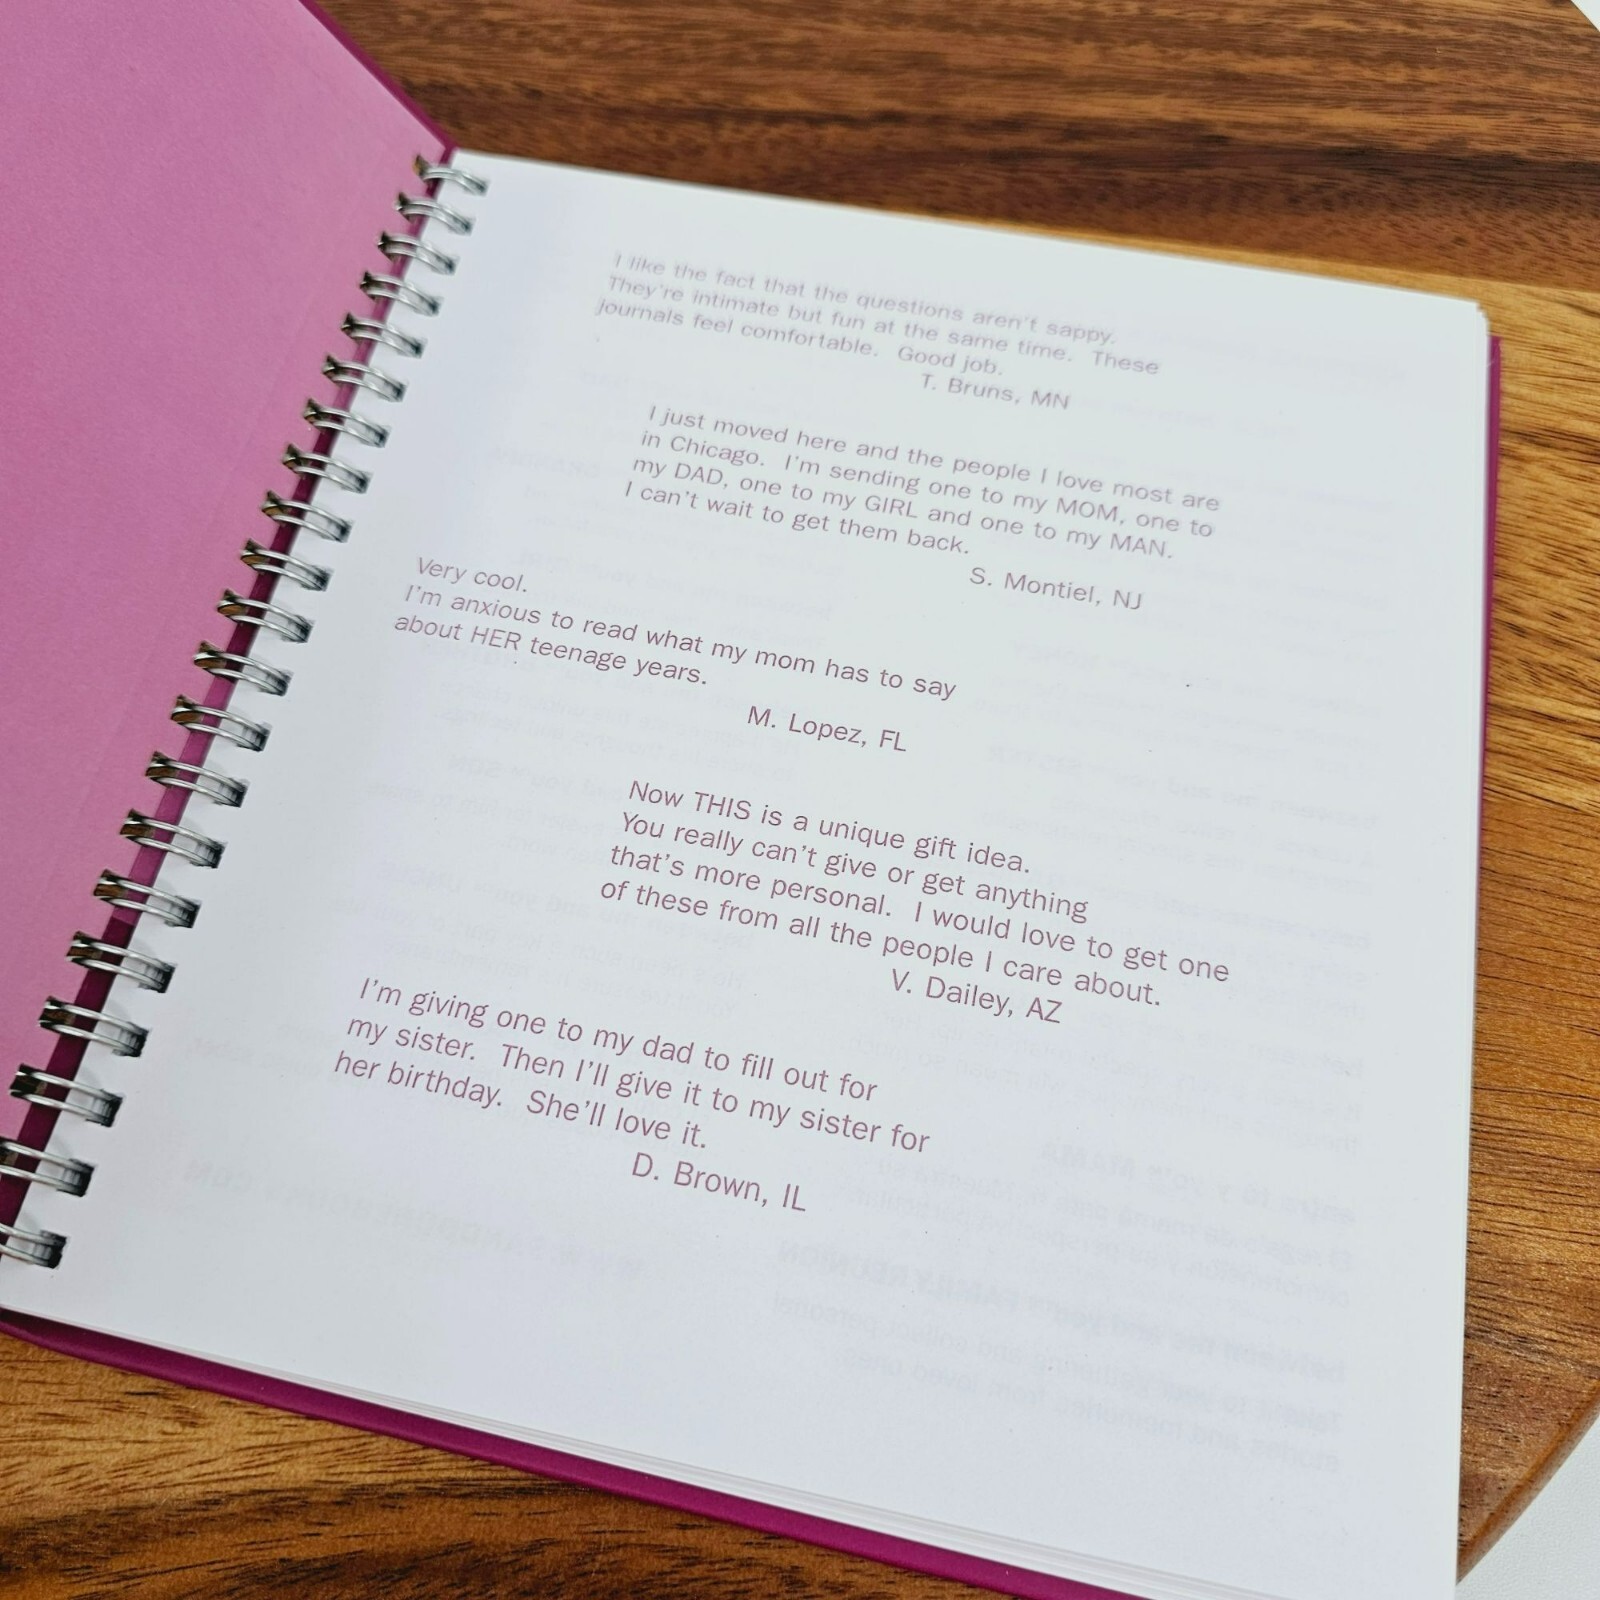 I like the fact that the questions aren't sappy.
They're intimate but fun at the same time.  These
journals feel comfortable.  Good job.
T. Bruns, MN
I just moved here and the people I love most are
in Chicago.  I'm sending one to my MOM, one to
my DAD, one to my GIRL and one to my MAN.
I can't wait to get them back.
S. Montiel, NJ
Very cool.
I'm anxious to read what my mom has to say
about HER teenage years.
M. Lopez, FL
Now THIS is a unique gift idea.
You really can't give or get anything
that's more personal.  I would love to get one
of these from all the people I care about.
V. Dailey, AZ
I'm giving one to my dad to fill out for
my sister.  Then I'll give it to my sister for
her birthday.  She'll love it.
D. Brown, IL